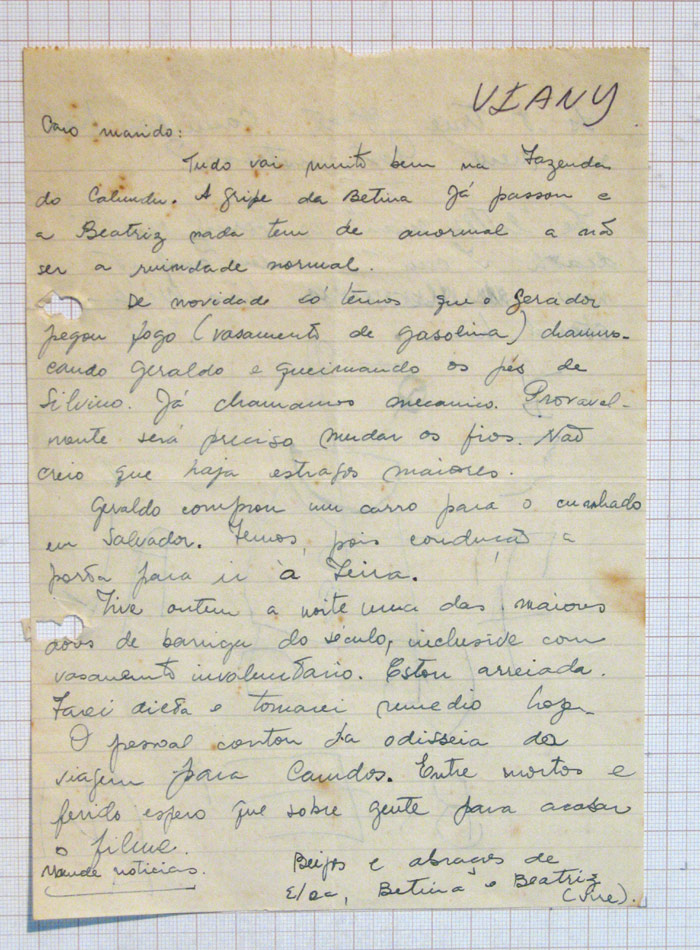 VIANY
Caro marido:
Tudo vai muito bem na Fazenda
do Calundu. A gripe da Betina Já passou e
a Beatriz nada tem de anormal a não
ser a ruindade normal.
De novidade só temos que o gerador
pegou fogo (vasamento de gasolina) chamus-
cando Geraldo e queimando os pés de
Silvino. Já chamamos mecanico. Provavel-
mente será preciso mudar os fios. Não
creio que haja estragos maiores.
Geraldo comprou um carro para o cunhado
em Salvador. Temos, pois condução a
porta para ir à Feira.
Tive ontem a noite uma das maiores
de barriga do século, inclusive com
vasamento involuntario. Estou arreiada.
Farei dieta e tomarei remedio hoje.
O pessoal contou da odisseia da
viagem para Canudos. Entre mortos e
ferido espero que sobre gente para acabar
o filme.
Mande noticias.
Beijos e abraços de
Betina e Beatriz